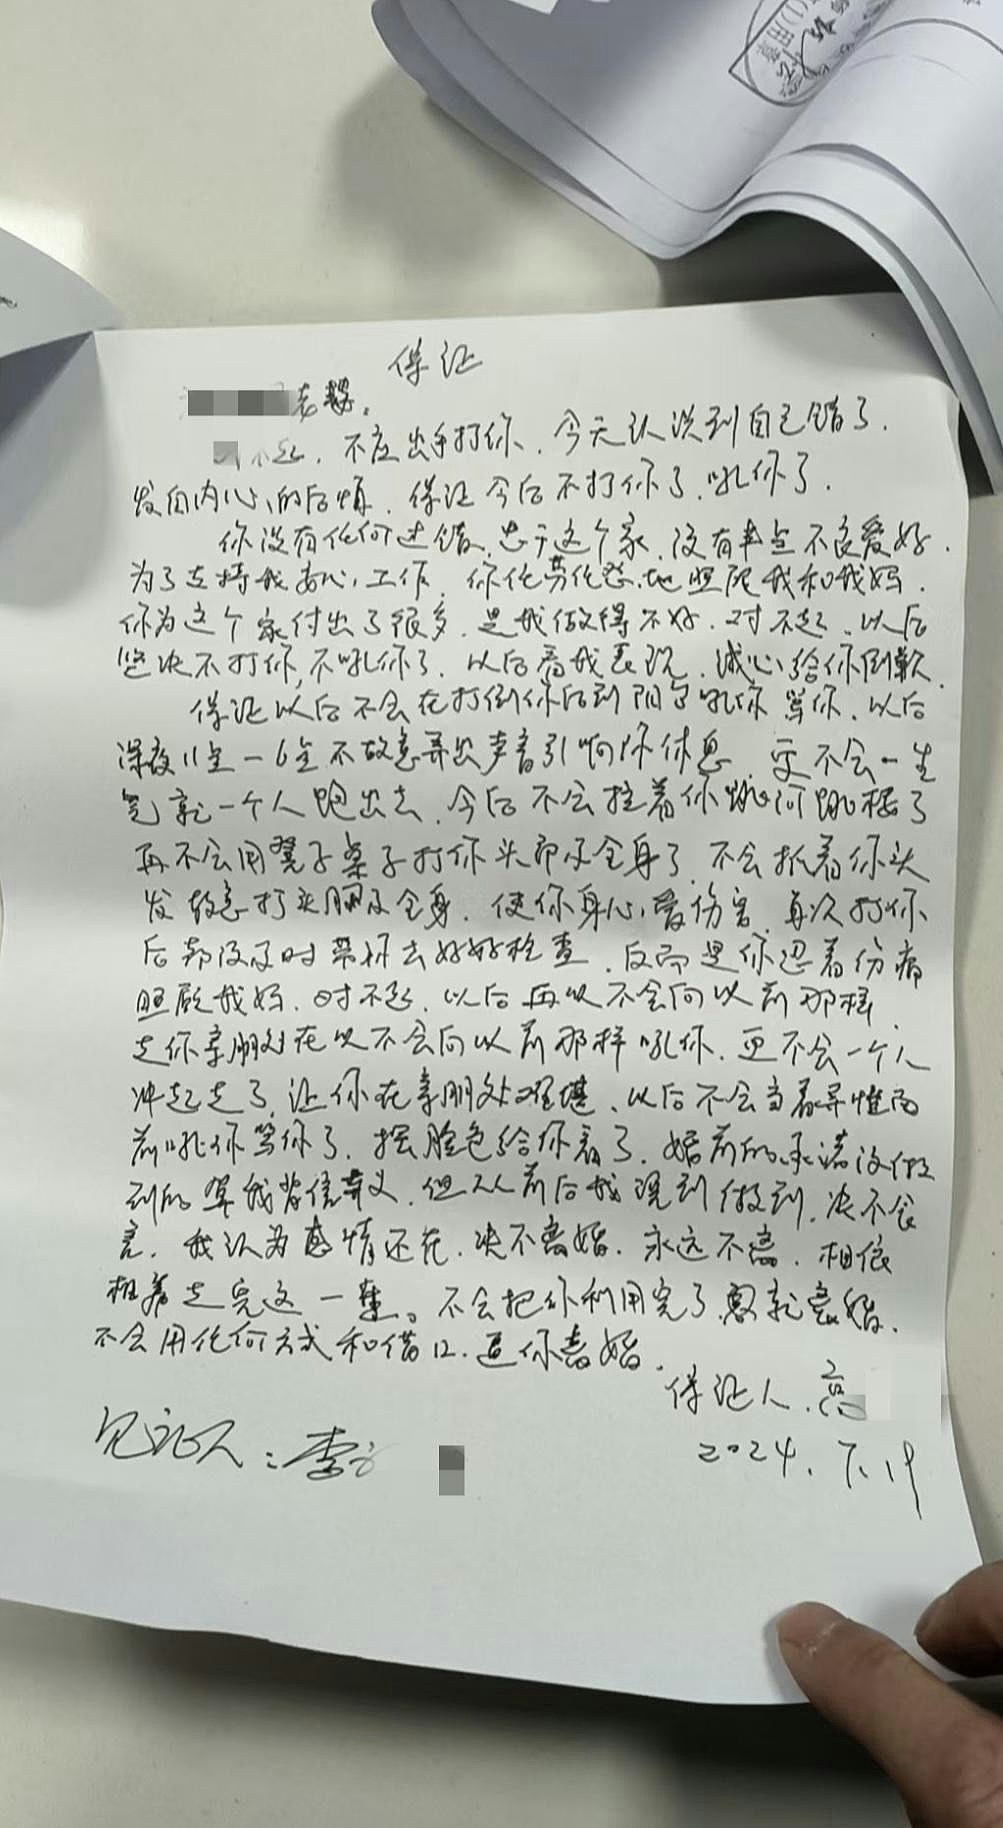 保证
老婆。
不起，不应出手打你，今天认识到自己错了，
发自内心的后悔，保证今后不打你了，吼你了，
你没有任何过错，忠于这个家，没有半点不良爱好，
为了支持我安心工作，你任劳任怨地照顾我和我妈，
你为这个家付出了很多，是我做得不好，对不起，以后
坚决不打你，不吼你了，以后看我表现，诚心给你倒歉，
保证以后不会在打倒你后到阳台吼你骂你，以后
深夜11点一6点不故意弄出声音引响你休息，更不会一生
气就一个人跑出去，今后不会拉着你跳河跳楼了
再不会用凳子桌子打你头部及全身了，不会抓着你头
发故意打头胸及全身，使你身心受伤害，每次打你
后都没及时带你去好好检查，反而是你忍着伤痛
照顾我妈，对不起，以后再以不会向以前那样，
走你亲朋处在以不会向以前那样吼你，更不会一个人
冲起走了，让你在亲朋处难堪，以后不会当着异性面
前吼你骂你了，摆脸色给你看了，婚前的承诺没做
到的算我背信弃义，但从前后我说到做到，决不食
言，我认为感情还在，决不离婚，永远不离，相依
相养走完这一辈。不会把你利用完了就离婚，
不会用任何方式和借口，逼你离婚，
保证人，高
见证人：李
2024.7.19